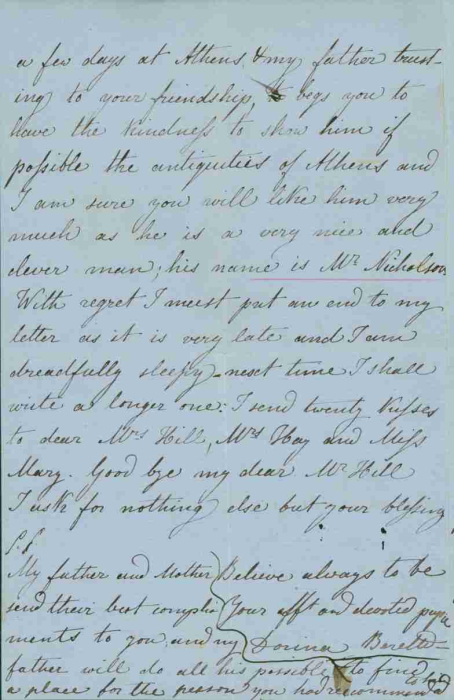 a few days at Athens & my father trust-
ing to your friendship, begs you to
have the kindness to show him if
possible the antiquities of Athens and
I am sure you will like him very
much as he is a very nice and
clever man; his name is Mr Nicholson
With regret I must put an end to my
letter as it is very late and I am
dreadfully sleepy – next time I shall
write a longer one: I send twenty kisses
to dear Mrs Hill, Mrs Hay and Miss
Mary. Good bye my dear Mr Hill
I ask for nothing else but your blessing
P.S.
My father and Mother
send their best compli
ments to you, and my
father will do all his possible to find
a place for the person you had recommend
Believe always to be
Your afft and devoted
Dorina